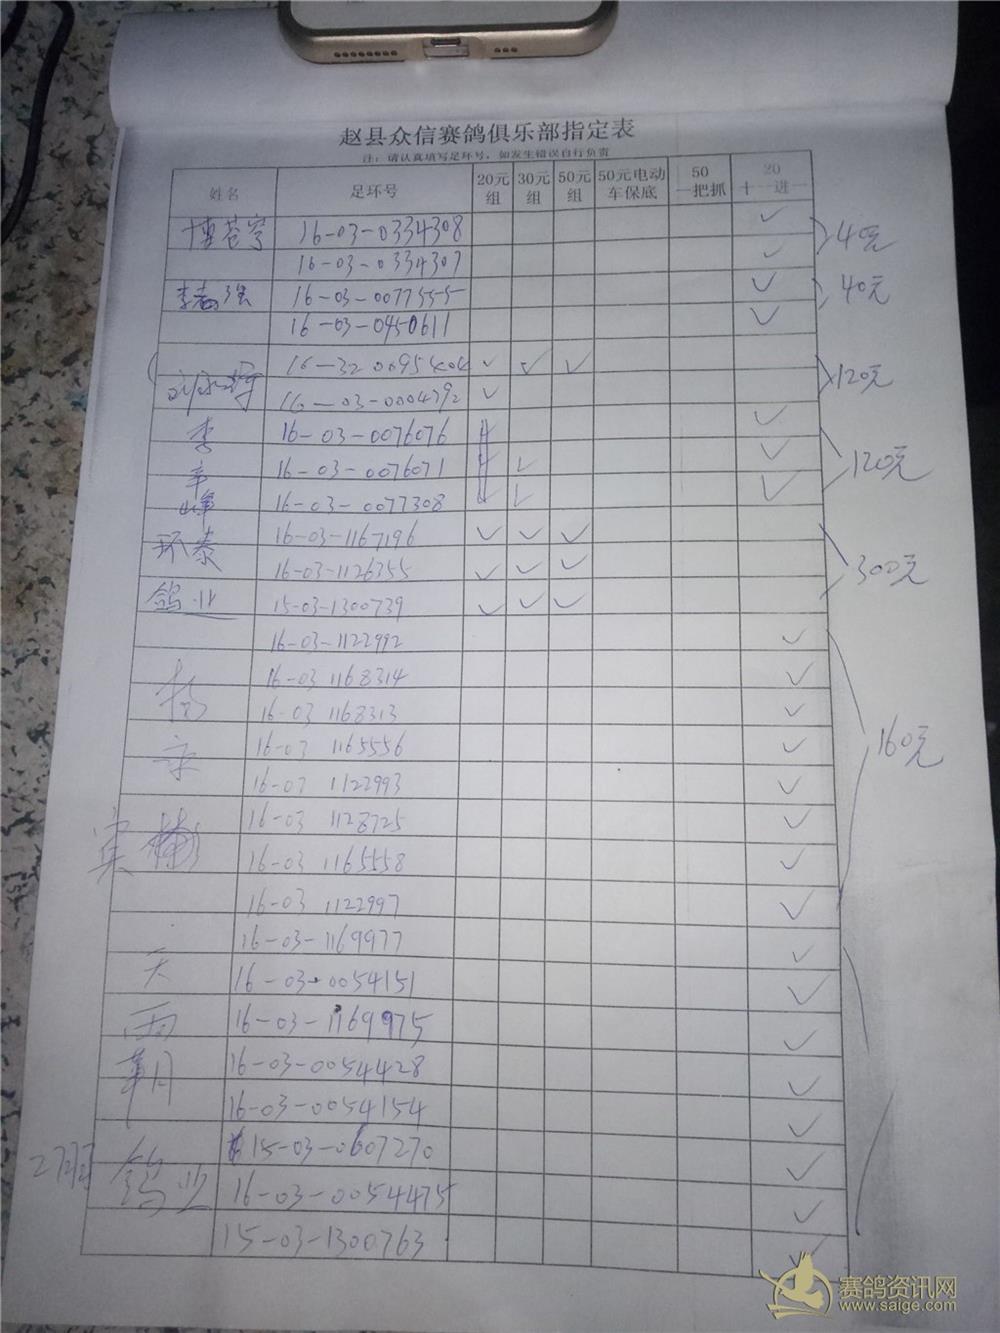 赵县众信赛鸽俱乐部指定表
注：请认真填写足环号，如发生错误自行负责
姓名 足环号 20元组 30元组 50元组 50元电动车保底 50一把抓 20十一进一
博苍穹 16-03-0334308 ✓ 40元
16-03-0334307 ✓
李 强 16-03-0077555 ✓ 40元
16-03-0450611 ✓
16-32 0095404 ✓ ✓ ✓ 120元
16-03-0004792 ✓
李 16-03-0076076 ✓
辛 16-03-0076071 ✓ ✓ 120元
峰 16-03-0077308 ✓ ✓
环泰 16-03-1167196 ✓ ✓ ✓
16-03-1126355 ✓ ✓ ✓ 300元
鸽业 15-03-1300739 ✓ ✓ ✓
16-03-1122992 ✓
杨 16-03 1168314 ✓
16-03 1168313 ✓
宗 16-03 1165556 ✓ 160元
16-03 1122993 ✓
宾 楠 16-03 1128725 ✓
16-03 1165558 ✓
16-03 1122997 ✓
16-03-1169977 ✓
天 16-03-0054151 ✓
雨 16-03-1169975 ✓
朝 16-03-0054428 ✓
16-03-0054154 ✓
15-03-0607270 ✓
鸽业 16-03-0054475 ✓
15-03-1300763 ✓
赛鸽资讯网
www.saige.com